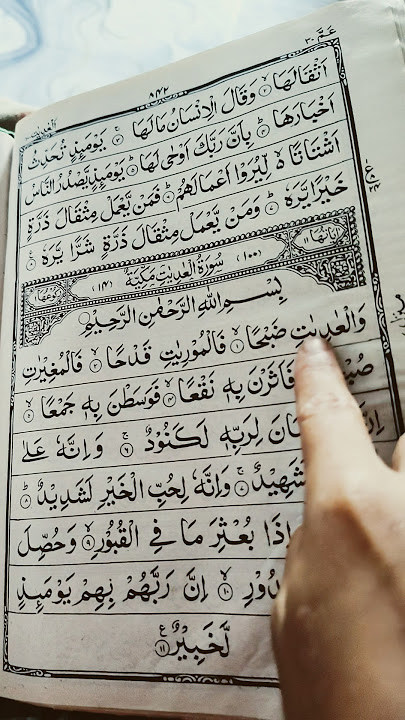 عَمَّ ٣٠
٨٤٢
اَثْقَالَهَا ۙ وَقَالَ الْاِنْسَانُ مَا لَهَا ۚ يَوْمَىِٕذٍ تُحَدِّثُ
اَخْبَارَهَا ۙ بِاَنَّ رَبَّكَ اَوْحٰى لَهَا ؕ يَوْمَىِٕذٍ يَّصْدُرُ النَّاسُ
اَشْتَاتًا ۙ لِّيُرَوْا اَعْمَالَهُمْ ؕ فَمَنْ يَّعْمَلْ مِثْقَالَ ذَرَّةٍ
خَيْرًا يَّرَهٗ ؕ وَمَنْ يَّعْمَلْ مِثْقَالَ ذَرَّةٍ شَرًّا يَّرَهٗ
اٰيَاتُهَا ١١ (١٠٠) سُوْرَةُ الْعٰدِيٰتِ مَكِّيَّةٌ (١٤) رُكُوْعُهَا
بِسْمِ اللّٰهِ الرَّحْمٰنِ الرَّحِيْمِ
وَالْعٰدِيٰتِ ضَبْحًا ۙ١ فَالْمُوْرِيٰتِ قَدْحًا ۙ٢ فَالْمُغِيْرٰتِ
فَاَثَرْنَ بِهٖ نَقْعًا ۙ٤ فَوَسَطْنَ بِهٖ جَمْعًا ۙ٥
لِرَبِّهٖ لَكَنُوْدٌ ۚ٦ وَاِنَّهٗ عَلٰى
لَشَهِيْدٌ ۚ٧ وَاِنَّهٗ لِحُبِّ الْخَيْرِ لَشَدِيْدٌ ؕ٨
اِذَا بُعْثِرَ مَا فِى الْقُبُوْرِ ۙ٩ وَحُصِّلَ
١٠ اِنَّ رَبَّهُمْ بِهِمْ يَوْمَىِٕذٍ
لَّخَبِيْرٌ ١١